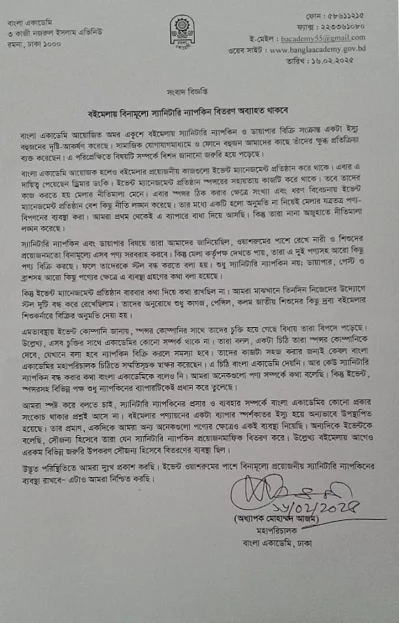 বাংলা একাডেমি
৩ কাজী নজরুল ইসলাম এভিনিউ
রমনা, ঢাকা ১০০০
ফোন : ৫৮৬১১২১৫
ফ্যাক্স : ২২৩৩৬১০৮০
ই-মেইল : bacademy55@gmail.com
ওয়েব সাইট : www.banglaacademy.gov.bd
তারিখ : ১৬.০২.২০২৫
সংবাদ বিজ্ঞপ্তি
বইমেলায় বিনামূল্যে স্যানিটারি ন্যাপকিন বিতরণ অব্যাহত থাকবে
বাংলা একাডেমি আয়োজিত অমর একুশে বইমেলায় স্যানিটারি ন্যাপকিন ও ডায়াপার বিক্রি সংক্রান্ত একটা ইস্যু
বহুজনের দৃষ্টি-আকর্ষণ করেছে। সামাজিক যোগাযোগমাধ্যমে ও ফোনে বহুজন আমাদের কাছে তাঁদের ক্ষুব্ধ প্রতিক্রিয়া
ব্যক্ত করেছেন। এ পরিপ্রেক্ষিতে বিষয়টি সম্পর্কে বিশদ জানানো জরুরি হয়ে পড়েছে।
বাংলা একাডেমি আয়োজক হলেও বইমেলার প্রয়োজনীয় কাজগুলো ইভেন্ট ম্যানেজমেন্ট প্রতিষ্ঠান করে থাকে। এবার এ
দায়িত্ব পেয়েছেন ড্রিমার ডংকি। ইভেন্ট ম্যানেজমেন্ট প্রতিষ্ঠান স্পন্সরের সহায়তায় কাজটি করে থাকে। তবে তাদের
কাজ করতে হয় মেলার নীতিমালা মেনে। এবার স্পন্সর ঠিক করার ক্ষেত্রে সংখ্যা এবং ধরণ বিবেচনায় ইভেন্ট
ম্যানেজমেন্ট প্রতিষ্ঠান বেশ কিছু নীতি লঙ্ঘন করেছে। তার মধ্যে একটি হলো অনুমতি না নিয়েই মেলার যত্রতত্র পণ্য-
বিপণনের ব্যবস্থা করা। আমরা প্রথম থেকেই এ ব্যাপারে বাধা দিয়ে আসছি। কিন্তু তারা নানা অজুহাতে নীতিমালা
লঙ্ঘন করেছে।
স্যানিটারি ন্যাপকিন এবং ডায়াপার বিষয়ে তারা আমাদের জানিয়েছিল, ওয়াশরুমের পাশে রেখে নারী ও শিশুদের
প্রয়োজনমতো বিনামূল্যে এসব পণ্য সরবরাহ করবে। কিন্তু মেলা কর্তৃপক্ষ দেখতে পায়, তারা এ দুই পণ্যসহ আরো কিছু
পণ্য বিক্রি করছে। ফলে তাদেরকে স্টল বন্ধ করতে বলা হয়। শুধু স্যানিটারি ন্যাপকিন নয়; ডায়াপার, পেস্ট ও
ব্রাশসহ আরো কিছু পণ্যের ক্ষেত্রে এ ব্যবস্থা গ্রহণের কথা বলা হয়েছে।
কিন্তু ইভেন্ট ম্যানেজমেন্ট প্রতিষ্ঠান বারবার কথা দিয়ে কথা রাখছিল না। আমরা মাঝখানে তিনদিন নিজেদের উদ্যোগে
স্টল দুটি বন্ধ করে রেখেছিলাম। তাদের অনুরোধে শুধু কাগজ, পেন্সিল, কলম জাতীয় শিশুদের কিছু দ্রব্য বইমেলার
শিশুকর্নারে বিক্রির অনুমতি দেয়া হয়।
এমতাবস্থায় ইভেন্ট কোম্পানি জানায়, স্পন্সর কোম্পানির সাথে তাদের চুক্তি হয়ে গেছে বিধায় তারা বিপদে পড়েছে।
উল্লেখ্য, এসব চুক্তির সাথে একাডেমির কোনো সম্পর্ক থাকে না। তারা বলল, একটা চিঠি তারা স্পন্সর কোম্পানিকে
দেবে, যেখানে বলা হবে ন্যাপকিন বিক্রি করলে সমস্যা হবে। তাদের কাজটা সহজ করার জন্যই কেবল বাংলা
একাডেমির মহাপরিচালক চিঠিতে সম্মতিসূচক স্বাক্ষর করেছেন। এ চিঠি বাংলা একাডেমি দেয়নি। আর কেউ স্যানিটারি
ন্যাপকিন বন্ধ করার কথা বাংলা একাডেমিকে বলেও নি। আমরা অনেকগুলো পণ্য সম্পর্কে কথা বলেছি। কিন্তু ইভেন্ট,
স্পন্সরসহ বিভিন্ন পক্ষ শুধু ন্যাপকিনের ব্যাপারটিকেই প্রধান করে তুলেছে।
আমরা স্পষ্ট করে বলতে চাই, স্যানিটারি ন্যাপকিনের প্রসার ও ব্যবহার সম্পর্কে বাংলা একাডেমির কোনো প্রকার
সংকোচ থাকার প্রশ্নই আসে না। বইমেলার পণ্যায়নের একটা ব্যাপার স্পর্শকাতর ইস্যু হয়ে অন্যভাবে উপস্থাপিত
হয়েছে। তার প্রমাণ, একদিকে আমরা অন্য অনেকগুলো পণ্যের ক্ষেত্রেও একই ব্যবস্থা নিয়েছি। অন্যদিকে ইভেন্টকে
বলেছি, সৌজন্য হিসেবে তারা যেন স্যানিটারি ন্যাপকিন প্রয়োজনমাফিক বিতরণ করে। উল্লেখ্য বইমেলায় আগেও
এরকম বিভিন্ন জরুরি উপকরণ সৌজন্য হিসেবে বিতরণের ব্যবস্থা ছিল।
উদ্ভূত পরিস্থিতিতে আমরা দুঃখ প্রকাশ করছি। ইভেন্ট ওয়াশরুমের পাশে বিনামূল্যে প্রয়োজনীয় স্যানিটারি ন্যাপকিনের
ব্যবস্থা রাখবে- এটাও আমরা নিশ্চিত করছি।
১৬/০২/২০২৫
(অধ্যাপক মোহাম্মদ আজম)
মহাপরিচালক
বাংলা একাডেমি, ঢাকা